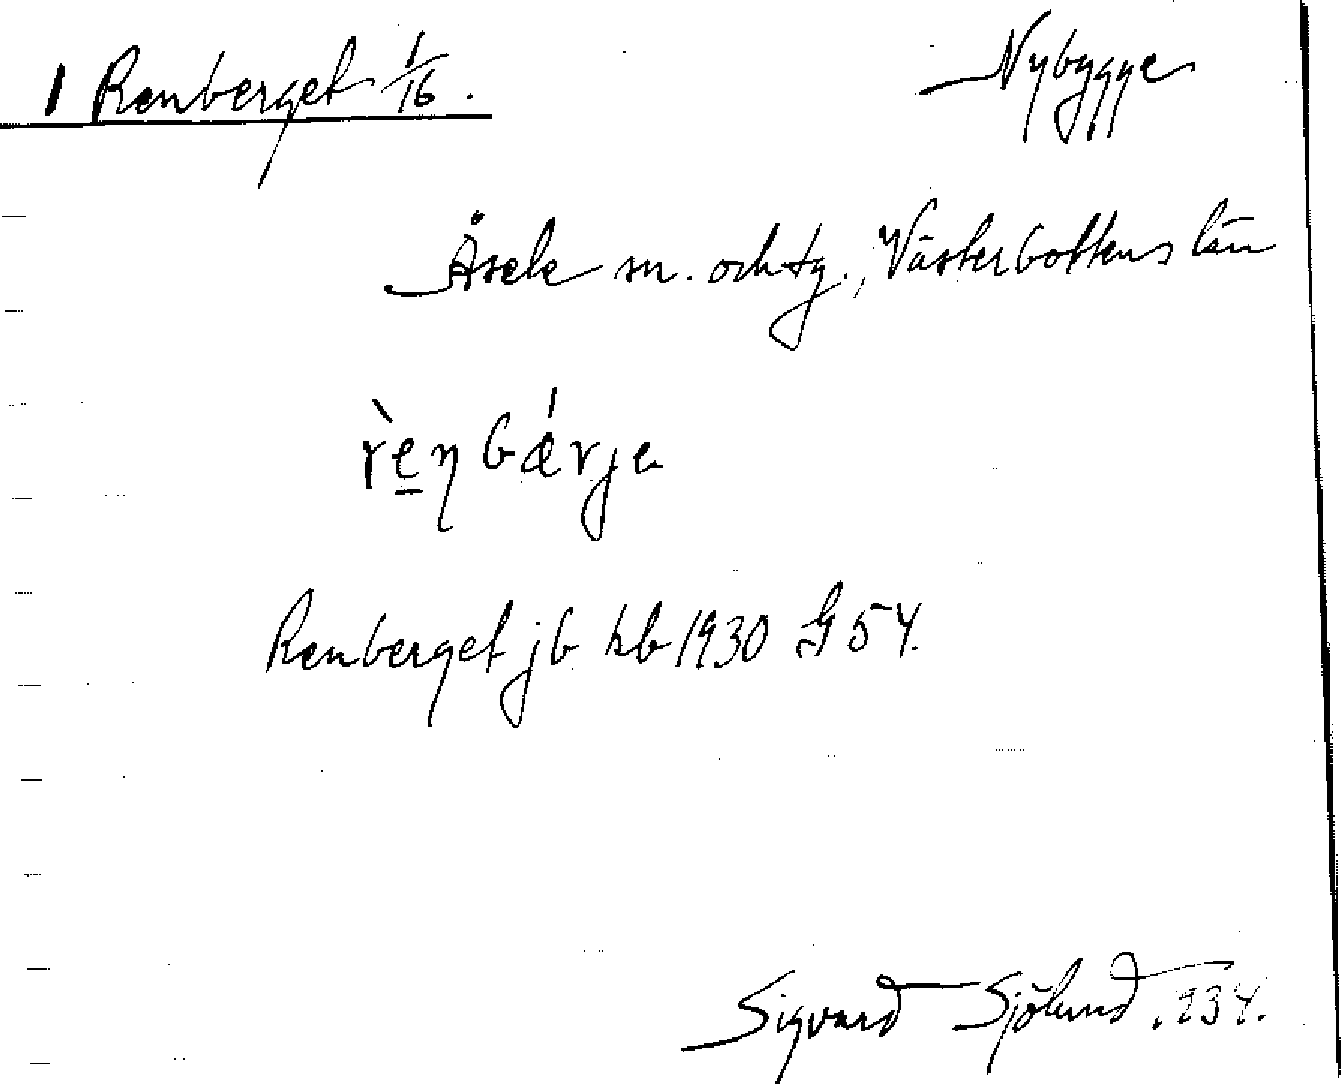 1 Renberget 1/16. Nybygge
Åsele sn. och tg., Västerbottens län
rèṉbǽrje
Renberget jb hb 1930 G 54.
Sigvard Sjölund. 1934.